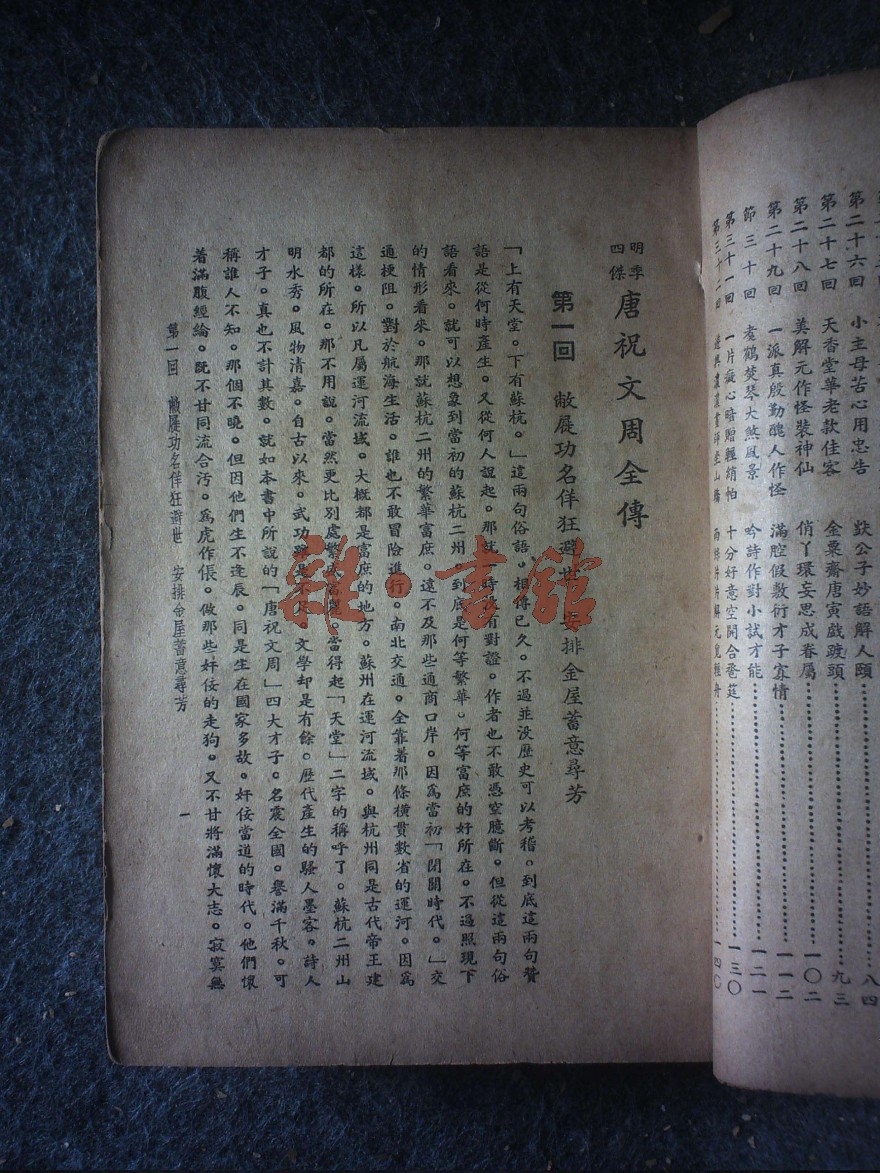 小主母苦心用忠告 歕公子妙語解人頤 八四
第二十六回
第二十七回 天香堂華老款佳客 金粟齋唐寅戲渡頭 九三
第二十八回 美解元作怪裝神仙 俏丫環妄思成眷屬 一〇二
第二十九回 一派真殷勤醜人作怪 滿腔假敷衍才子寡情 一一二
節三十回 煑鶴焚琴大煞風景 吟詩作對小試才能 一二一
第三十一回 一片癡心暗贈輕綃帕 十分好意空開合巹筵 一三〇
第三十二回 一四〇
明季四傑 唐祝文周全傳
第一回 敝屣功名佯狂避世 安排金屋蓄意尋芳
「上有天堂。下有蘇杭。」這兩句俗語。相傳已久。不過並沒歷史可以考稽。到底這兩句贊
語是從何時產生。又從何人說起。那就一時沒有對證。作者也不敢憑空臆斷。但從這兩句俗
語看來。就可以想象到當初的蘇杭二州。到底是何等繁華。何等富庶的好所在。不過照現下
的情形看來。那就蘇杭二州的繁華富庶。遠不及那些通商口岸。因爲當初「閉關時代。」交
通梗阻。對於航海生活。誰也不敢冒險進行。南北交通。全靠着那條橫貫數省的運河。因爲
這樣。所以凡屬運河流域。大概都是富庶的地方。蘇州在運河流域。與杭州同是古代帝王建
都的所在。那不用說。當然更比別處繁盛富麗。當得起「天堂」二字的稱呼了。蘇杭二州山
明水秀。風物清嘉。自古以來。武功雖是不足。文學却是有餘。歷代產生的騷人墨客。詩人
才子。真也不計其數。就如本書中所說的「唐祝文周」四大才子。名震全國。譽滿千秋。可
稱誰人不知。那個不曉。但因他們生不逢辰。同是生在國家多故。奸佞當道的時代。他們懷
着滿腹經綸。既不甘同流合污。爲虎作倀。做那些奸佞的走狗。又不甘將滿懷大志。寂寞無
第一回 敝屣功名佯狂避世 安排金屋蓄意尋芳 一
雜·書館